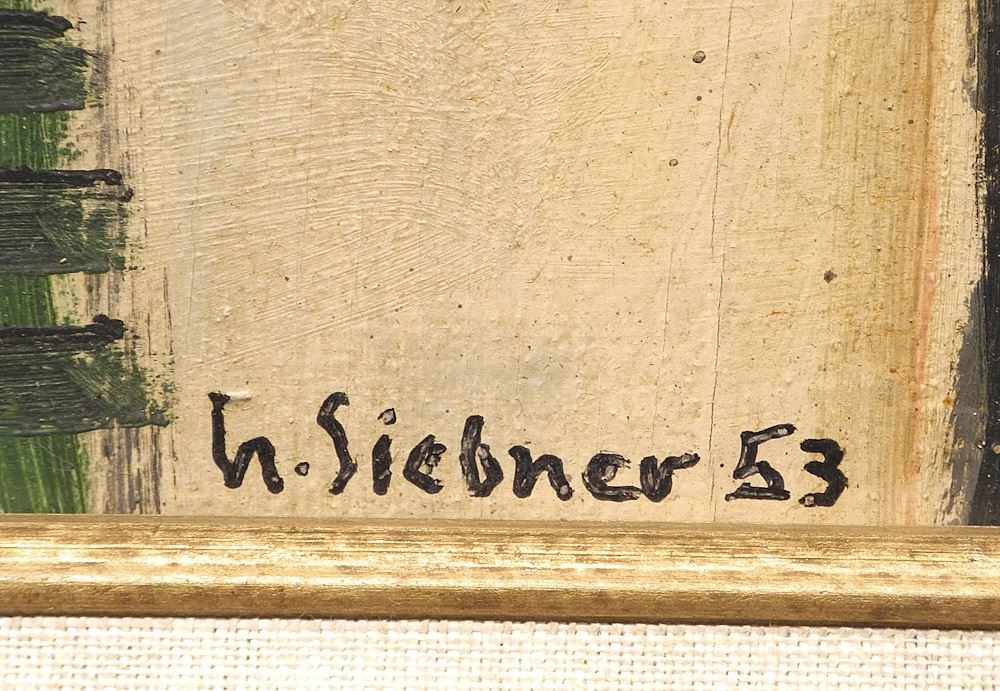 h. Siebner 53